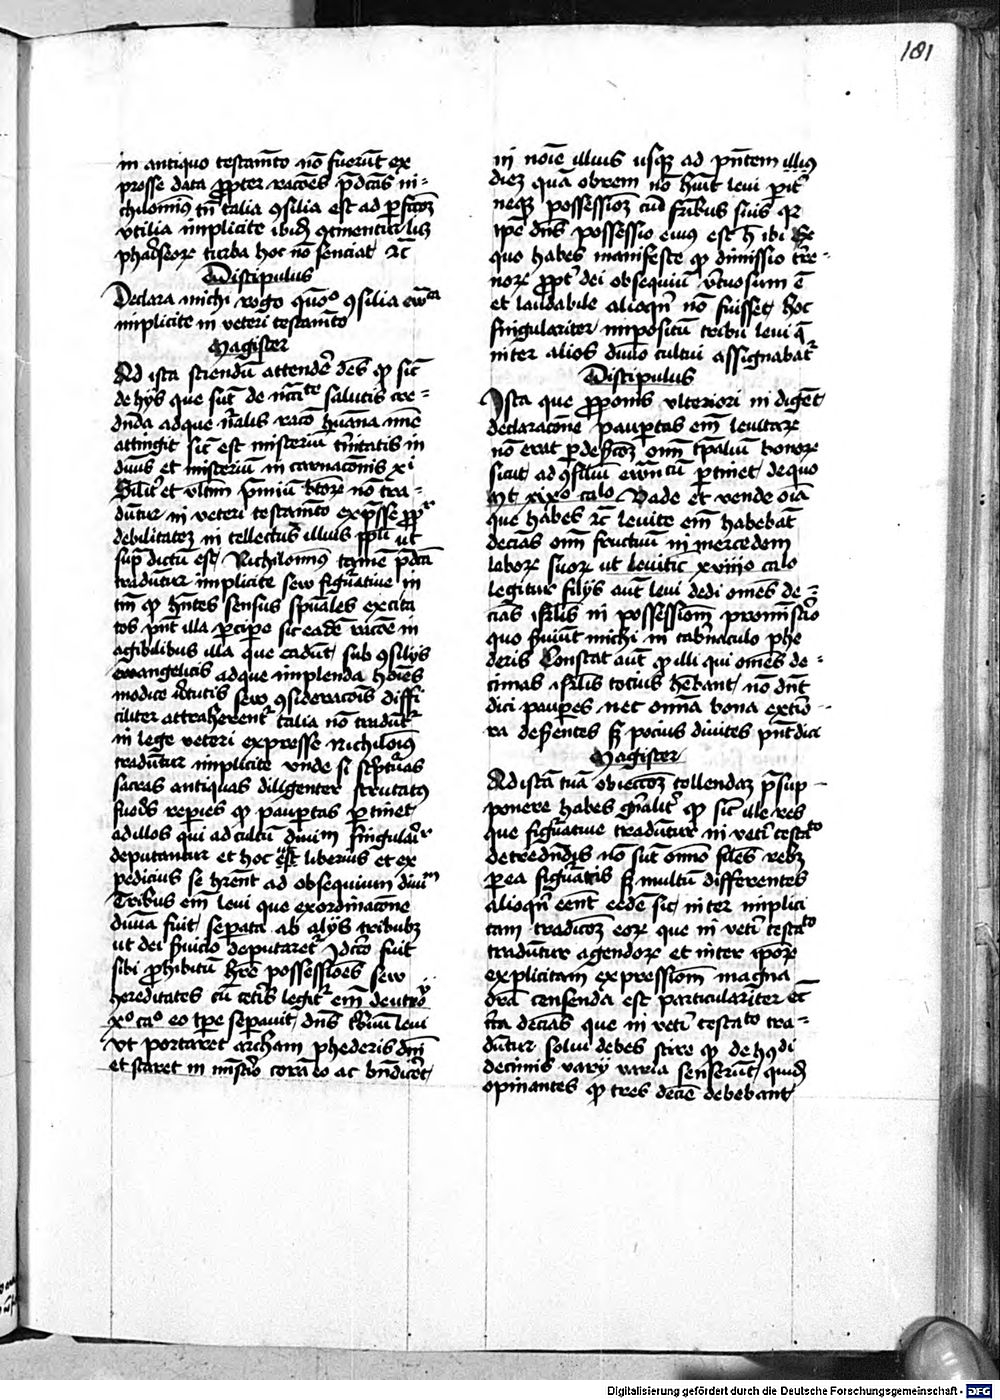 181
in antiquo testam̄to nō fuerūt ex
presse data ꝓpter racōes p̄dc̄as ni-
chilomiꝰ tn̄ talia ꝯsilia est ad ꝑfc̄coꝫ
vtilia implicite ibidꝫ ꝯtinentur lꝫ
phariseoꝝ turba hoc nō senciat ꝛc̄
Discipulus
Declara michi rogo quōo ꝯsilia ewᵃ
implicite in veteri testam̄to
Magister
Ad ista sciendū attendē dēs ꝙ sic̄
de hijs que sūt de nc̄cᵗᵉ salutis cre-
dn̄da ad que n̄alis racō hūana mīe
attingit sic̄ est misteriū t̄nitatis in
diuīs et misteriū incarnacōnis xi
Silir̄ et vltim̄ p̄miū bt̄oꝝ nō tra-
dūtur in veteri testam̄to exp̄sse ꝓpʳ
debilitateꝫ intellectus illius ppl̄i ut
sup̄ dictū est Nichilomiꝰ tamē p̄dc̄a
tradūtur implicite sew figuratiue in
tm̄ ꝙ hn̄tes sensus spūales excita
tos pn̄t illa ꝑcipe sic eadē racōe in
agibilibus illa que cadūt sub ꝯsilijs
ewangelicis ad que implenda hoīes
modice v̄tutis sew ꝯsideracōis diffi
ciliter attraherent᷑ talia nō tradūt᷑
in lege veteri expresse Nichilomiꝰ
tradūtur implicite vnde si scpt̄uras
sacras antiquas diligenter scrutatꝰ
fueris repies ꝙ paupertas ꝑtinet
ad illos qui ad cultū diuīm singularʳ
deputantur et hoc est liberius et ex
pedicius se hrēnt ad obsequium diuīᵐ
Tribus em̄ leui que ex ordinacōne
diuīa fuit sepata ab alijs tribubꝫ
ut dei ſ̄uicio deputaret᷑ Idcir̄o fuit
sibi ꝓhibitū hr̄e possessiōes sew
hereditates cū cet̄is legit᷑ em̄ deutroº
xº caº eo tpe sepauit dn̄s tbūm leui
vt portaret archam phederis dn̄i
et staret in mīst̄io corā eo ac bn̄dicēt
in noīe illius usqꝫ ad pn̄tem illiꝰ
dieꝫ quā obrem nō hūit leui ꝑt᷑
neqꝫ possessioꝫ cū frībus suis qꝛ
ipē dn̄s possessio eius est h̄ ibi Ex
quo habes manifeste ꝙ dimissio tr̄e-
noꝝ ꝓpt᷑ dei obsequiū v̄tuosum ē
et laudabile alioqn̄ nō fuisset hoc
singulariter impositū tribui leui q̄
inter alios diuīo cultui assignabat᷑
Discipulus
Ista que ꝓponis vlteriori indigēt
declaracōne paupertas em̄ leuitaꝝ
nō erat ꝑ descoꝫ om̄ tp̄aliū bonoꝝ
sicut ad ꝯsiliū ewn̄icū ꝑtinet de quo
Mt xixº caLo Vade et vende oīa
que habes ꝛc̄ leuite em̄ habebāt
decīas om̄ fructuū in mercedem
laboꝝ suoꝝ ut leuitic xviijo caLo
legitur filijs aut̄ leui dedi omēs de-
cīas isrl̄is in possessiom̄ pro mīst̄io
quo ſ̄uiūt michi in tab̄naculo phe
deris Constat aut̄ ꝙ illi qui omēs de-
cimas isrl̄is totius hēbant nō dn̄t
dici pauꝑes nec om̄ia bona exterio-
ra deserentes sꝫ pocius diuites pn̄t dici
Magister
Ad istā tuā obiecc̄oꝫ tollendaꝫ p̄sup-
ponere habes gn̄alit᷑ ꝙ sic̄ ille res
que figuratiue tradūtur in vet̄i testaᵗᵒ
de credn̄dis nō sūt om̄io sil̄es rebꝫ
ꝑ ea figuratis sꝫ multū differentes
alioqn̄ eēnt eedē sic inter implici
tam tradicōꝫ eoꝝ que in vet̄i testaᵗᵒ
tradūtur agendoꝝ et inter ipōꝝ
explicitam expressiom̄ magna
dr̄a censenda est particulariter et̄
c̄ca decīas que in vet̄i testaᵗᵒ tra-
dūtur solui debes scire ꝙ de hꝰdi
decimis varij varia senserūt quidꝫ
opinantes ꝙ tres decīe debebant
Digitalisierung gefördert durch die Deutsche Forschungsgemeinschaft - DFG